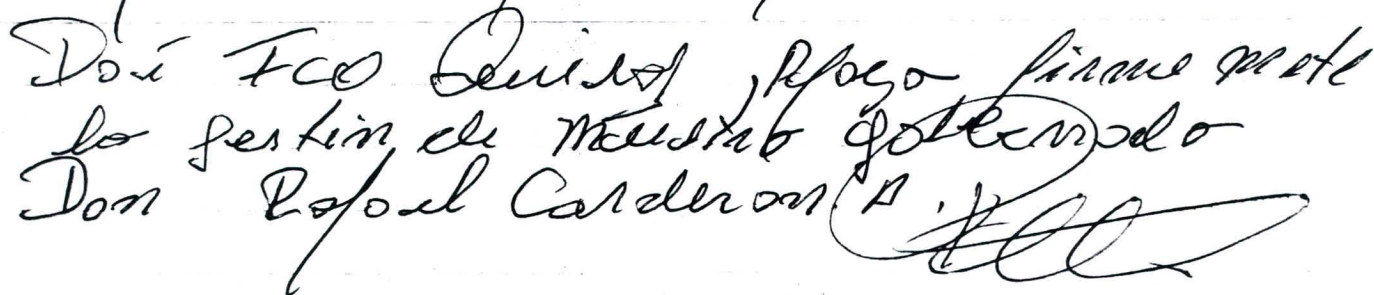 José Fco Quiros, Apoyo firmemente
la gestin de nuestro gobernado
Don Rafael Calderon A.